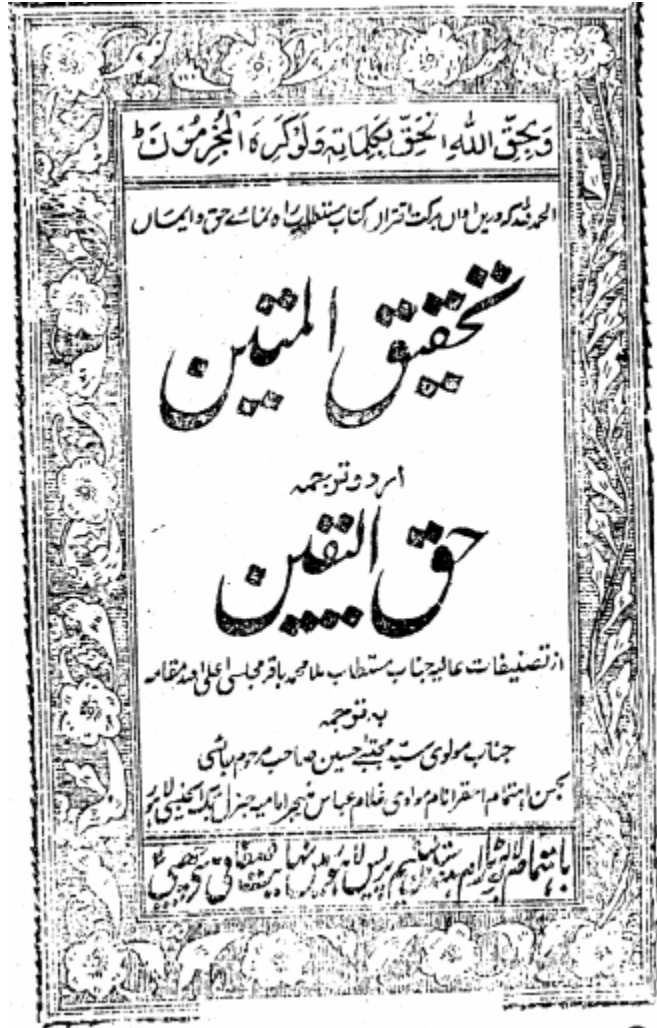 وَيُحِقُّ اللّٰهُ الْحَقَّ بِكَلِمَاتِهٖ وَلَوْ كَرِهَ الْمُجْرِمُوْنَ ؕ
الحمد للہ کہ دریں اواں برکت اقتران کتاب مستطاب راہ نمائے حق و ایماں
تحقیق المتین
اردو ترجمہ
حق الیقین
از تصنیفات عالیہ جناب مستطاب ملا محمد باقر مجلسی اعلی اللہ مقامہ
بہ ترجمہ
جناب مولوی سید مجتبےٰ حسین صاحب مرحوم
بحسن اہتمام احقر انام مولوی غلام عباس منیجر امامیہ جنرل بک ایجنسی لاہور
باہتمام پریس لاہور